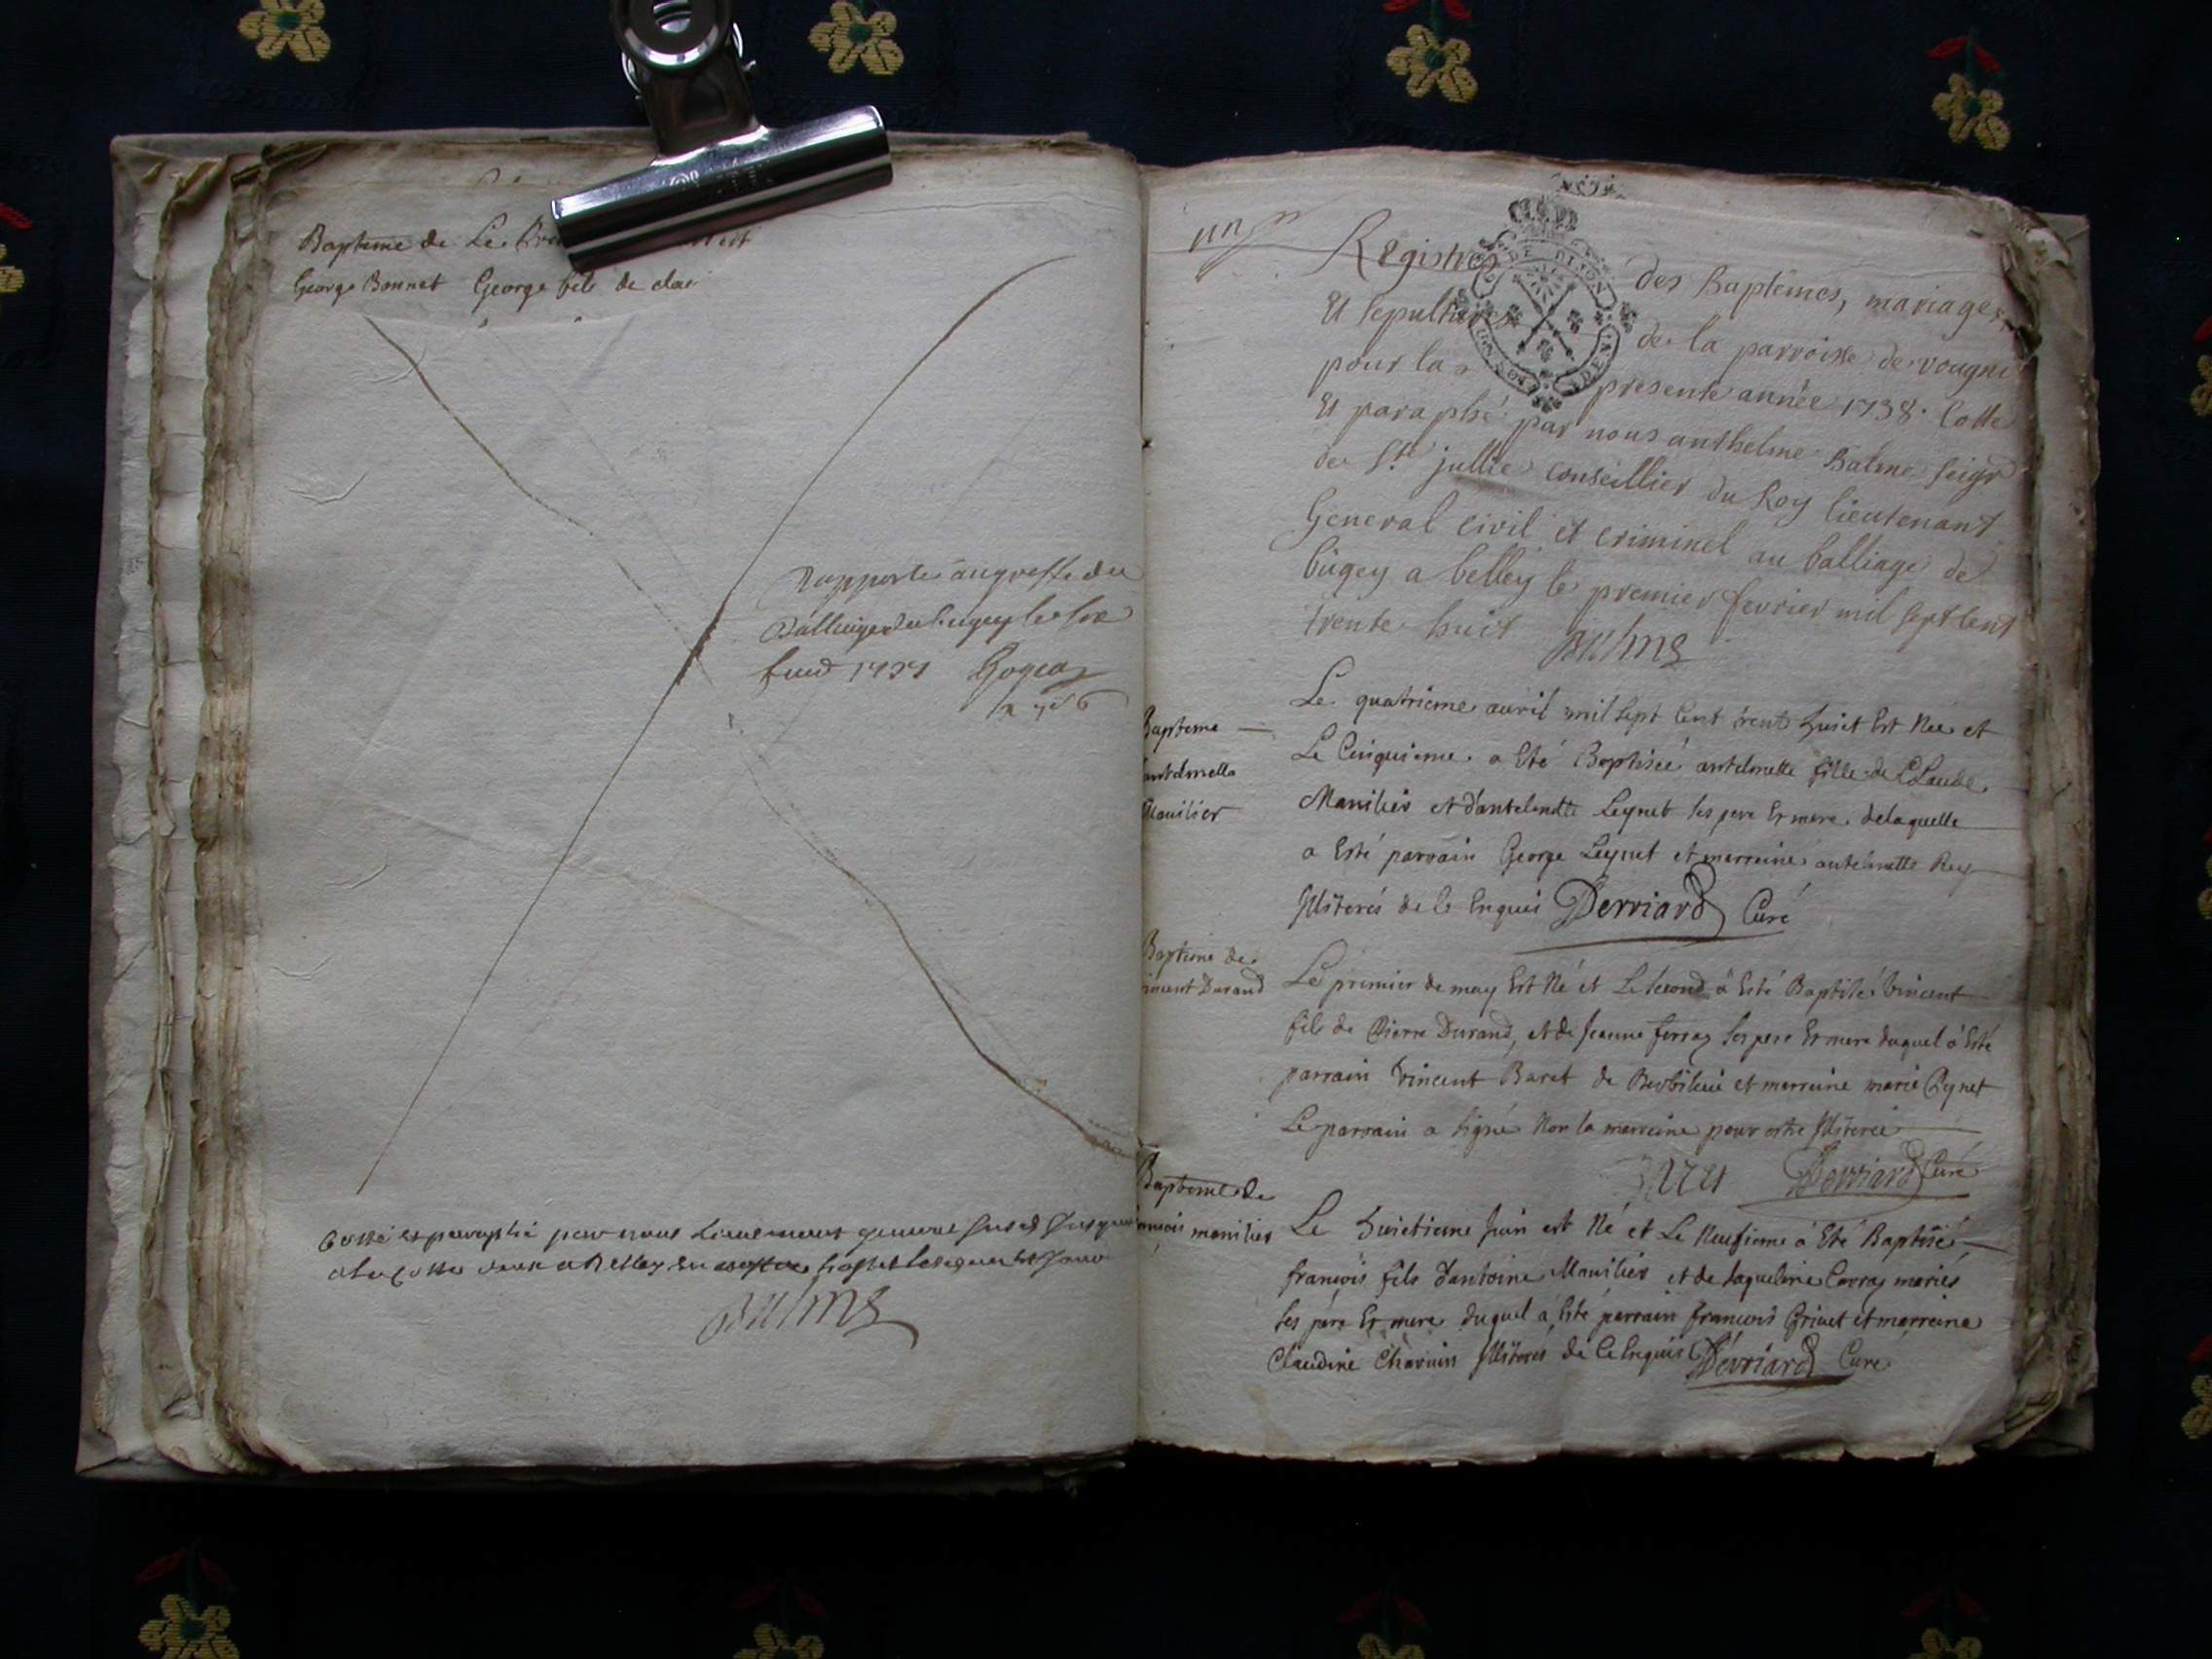 Bapteme de Le
George Bonnet George fils de
Rapporté au greffe du
Balliage du bugey le
1738
Cotté et paraphé par nous Lieutenant general
Balme
un
Registre des Baptêmes, mariages,
Et sepultures de la parroisse de vougne
pour la presente année 1738. Cotté
Et paraphé par nous anthelme Balme seigr
de St. jullie conseillier du Roy lieutenant
General civil et criminel au balliage de
bugey a belley le premier fevrier mil sept cent
trente huit Balme
Bapteme
antelmette
Manilier
Le quatrieme avril mil sept cent trent huict Est Née et
Le Cinquieme a Eté Baptisée antelmette fille de Claude
Manilier et d'antelmette Leynet ses pere Et mere, de laquelle
a Esté parrain George Leynet et marreine antelmette Rey
Illiterés de ce Enquis Derriard Curé
Baptême de
vincent Durand
Le premier de may Est Né et Le second a Esté Baptisé vincent
fils de Pierre Durand, et de Jeanne ferraz ses pere Et mere duquel a Esté
parrain vincent Baret de et marreine marie Eynet
Le parrain a signé Non la marreine pour estre Illiterée
Derriard Curé
Baptême de
françois manilier
Le huictieme Juin est Né et Le Neufieme a Eté Baptisé
françois fils d'antoine Manilier et de Jaqueline Carraz mariés
ses père Et mere duquel a Esté parrain françois Grinet et marreine
Claudine Charvin Illiterés de ce Enquis Derriard Curé